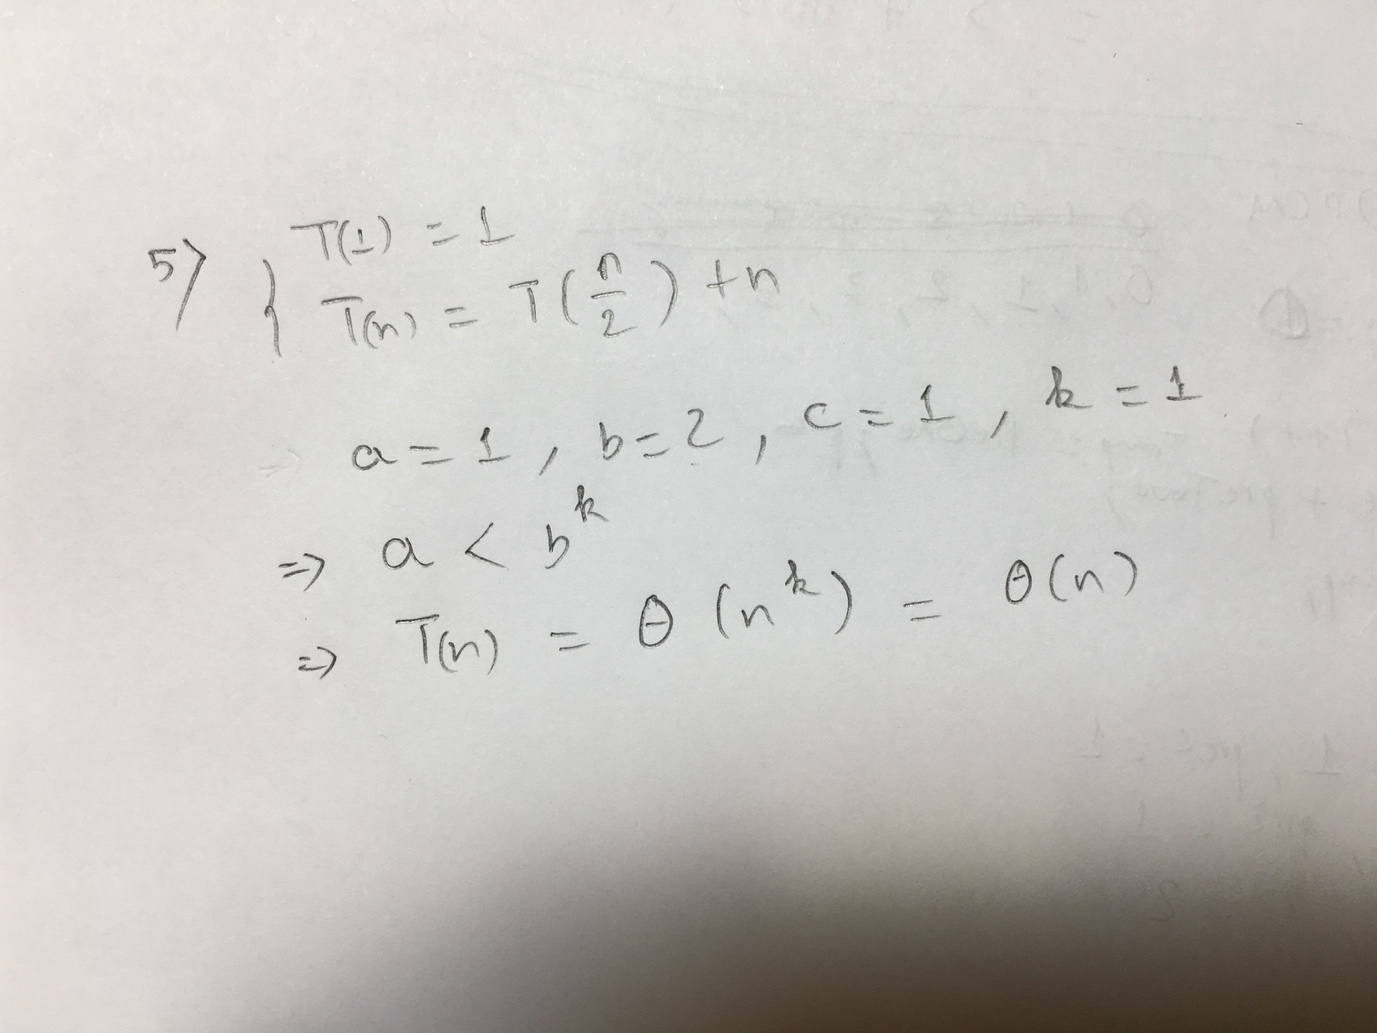 5) { T(1) = 1
T(n) = T(n/2) + n
a = 1, b = 2, c = 1, k = 1
⇒ a < b^k
⇒ T(n) = θ(n^k) = θ(n)